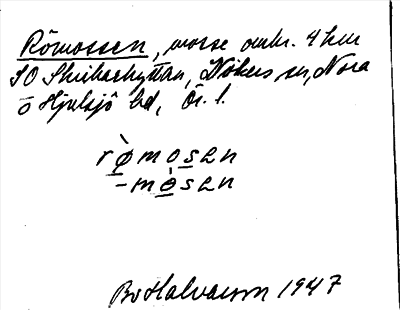 Römossen, mosse omkr. 4 km
SO Skrikarhyttan, Vikers sn, Nora
o Hjulsjö bd, Ör. l.
rø̀mosɘn
-mòsɘn
Bo Halvarson 1947